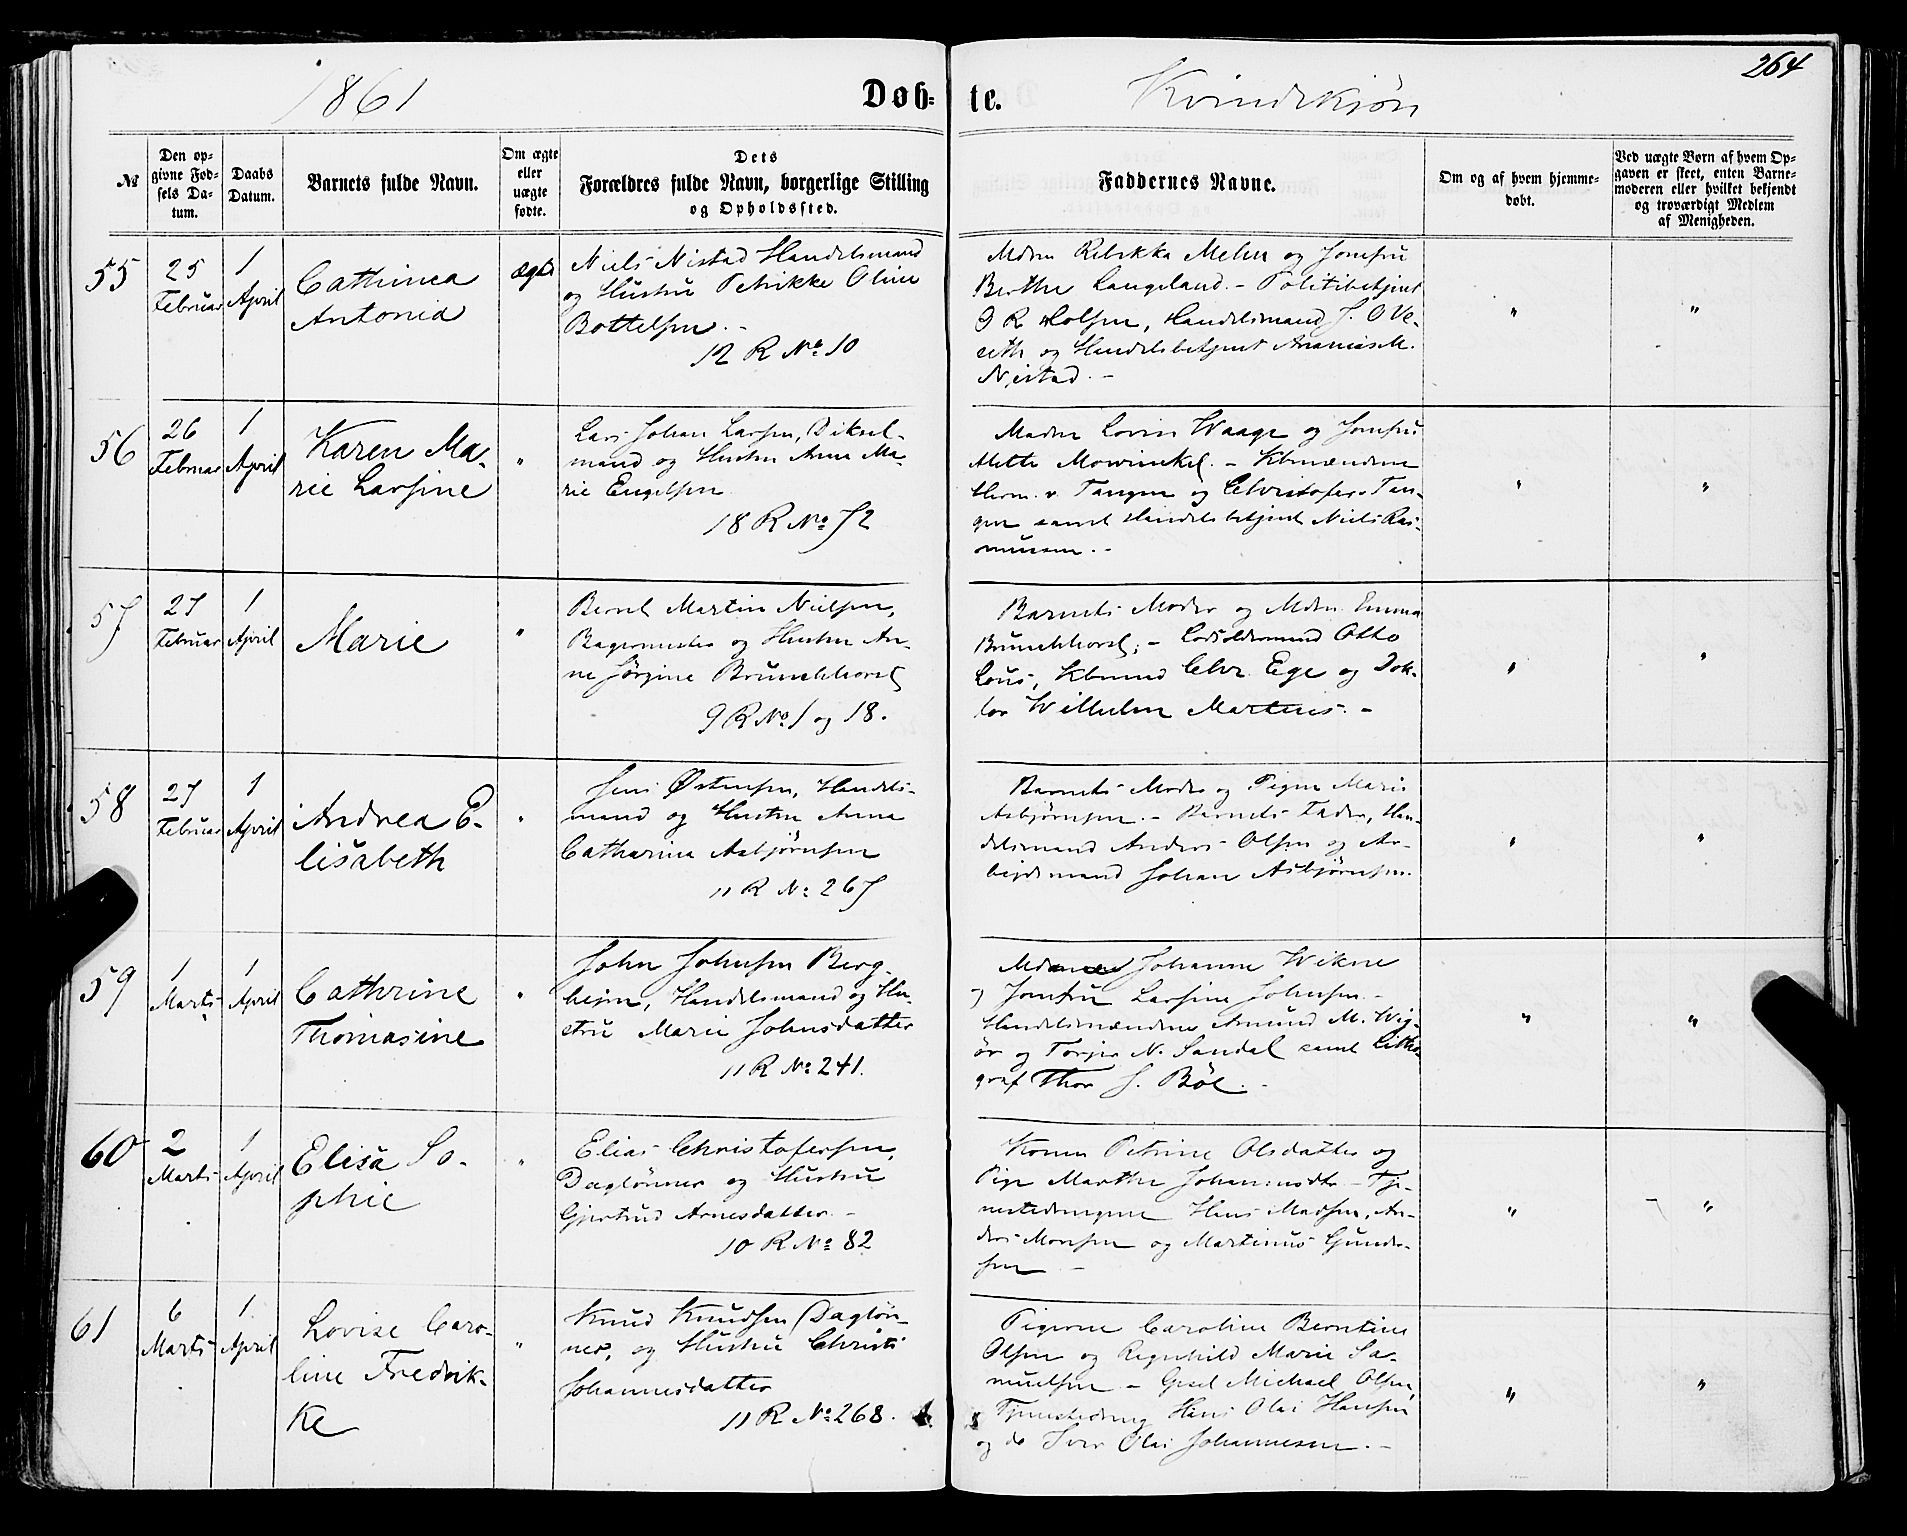 264
1861
Døb-
te.
Kvindekjøn
№
Den op-
givne Fød-
sels Da-
tum.
Daabs
Datum.
Barnets fulde Navn.
Om ægte
eller
uægte
fødte.
Dets
Forældres fulde Navn, borgerlige Stilling
og Opholdssted.
Faddernes Navne.
Om og af hvem hjemme-
døbt.
Ved uægte Børn af hvem Op-
gaven er skeet, enten Barne-
moderen eller hvilket bekjendt
og troværdigt Medlem
af Menigheden.
55
25
Februar
1
April
Cathinca
Antonia
ægte
Niels Nistad Handelsmand
og Hustru Petrikke Oline
Bottelsen. -
12 R No 10
Mdm Rebekka Mehn og Jomfru
Berthe Langeland. - Politibetjent
O R Holsen, Handelsmand J. O Ve-
seth og Handelsbetjent Ananias M.
Nistad. -
"
"
56
26
Februar
1
April
Karen Ma-
rie Larsine
"
Lars Johan Larsen, Diksel-
mand og Hustru Anna Ma-
rie Engelsen
18 R No 72
Madm Lovise Waage og Jomfru
Mette Mowinkel. - Kbmændene
Herm. v. Tangen og Christofer v Tan-
gen samt Handelsbetjent Niels Ras-
mussen. -
"
"
57
27
Februar
1
April
Marie
"
Bernt Martin Nielsen,
Bagermester og Hustru An-
ne Jørgine Brunchhorst
9 R No 1 og 18.
Barnets Moder og Mdm Emma
Brunchhorst. - Lodsoldermand Otto
Lous, Kbmand Chr. Ege og Dok-
tor Wilhelm Martens. -
"
"
58
27
Februar
1
April
Andrea E-
lisabeth
"
Jens Østensen, Handels-
mand og Hustru Anna
Catharina Asbjørnsen
11 R No 267
Barnets Moder og Pigen Maria
Asbjørnsen. - Barnets Fader, Han-
delsmand Anders Olsen og Ar-
beidsmand Johan Asbjørnsen.
"
"
59
1
Marts
1
April
Cathrine
Thomasine
"
John Johnsen Berg-
heim, Handelsmand og Hu-
stru Marie Johnsdatter
11 R No 241.
Johanne Wikne
og Jomfru Larsine Johnsen. -
Handelsmændene Amund M. Wig-
ør og Torjer N. Sandal samt Litho-
graf Thor J. Böe. -
"
"
60
2
Marts
1
April
Elisa So-
phie
"
Elias Christofersen,
Dagløner og Hustru
Gjertrud Arnesdatter. -
10 R No 82
Konen Petrine Olsdatter og
Pige Marthe Johannesdtr - Tje-
nestedrengene Hans Madsen, An-
ders Monsen og Martinus Gunder-
sen -
"
"
61
6
Marts
1
April
Lovise Caro-
line Fredrik-
ke
"
Knud Knudsen Dagløn-
ner, og Hustru Christi
Johannesdatter
11 R No 268.
Pigerne Caroline Berntine
Olsen og Regnhild Marie Sa-
muelsen - Gesel Michael Olsen,
Tjenestedreng Hans Olai Hansen
og do Iver Olai Johannesen. -
"
"